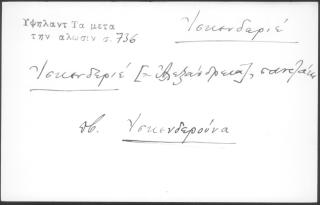 Υψηλαντ Τα μετα
την αλωσιν σ. 736
Ἰσκενδεριέ
Ἰσκενδεριέ [= Ἀλεξάνδρεια], σαντζάκ
πβ. Ἰσκενδερούνα